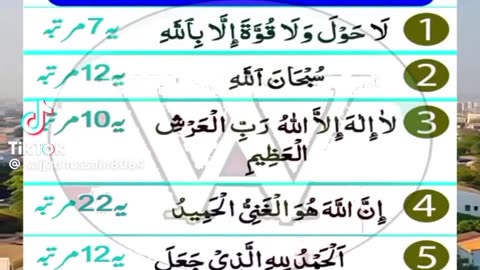 1 لَا حَوْلَ وَلَا قُوَّةَ إِلَّا بِاللهِ یہ 7 مرتبہ
2 سُبْحَانَ اَللهِ یہ 12 مرتبہ
3 لاَ إِلهَ إِلاَّ اللهُ رَبِّ الْعَرْشِ یہ 10 مرتبہ
الْعَظِيمِ
TikTok
4 إِنَّ اللَّهَ هُوَ الْغَنِيُّ الْحَمِيدُ یہ 22 مرتبہ
5 اَلْحَمْدُ لِلهِ الَّذِيْ جَعَلَ یہ 12 مرتبہ